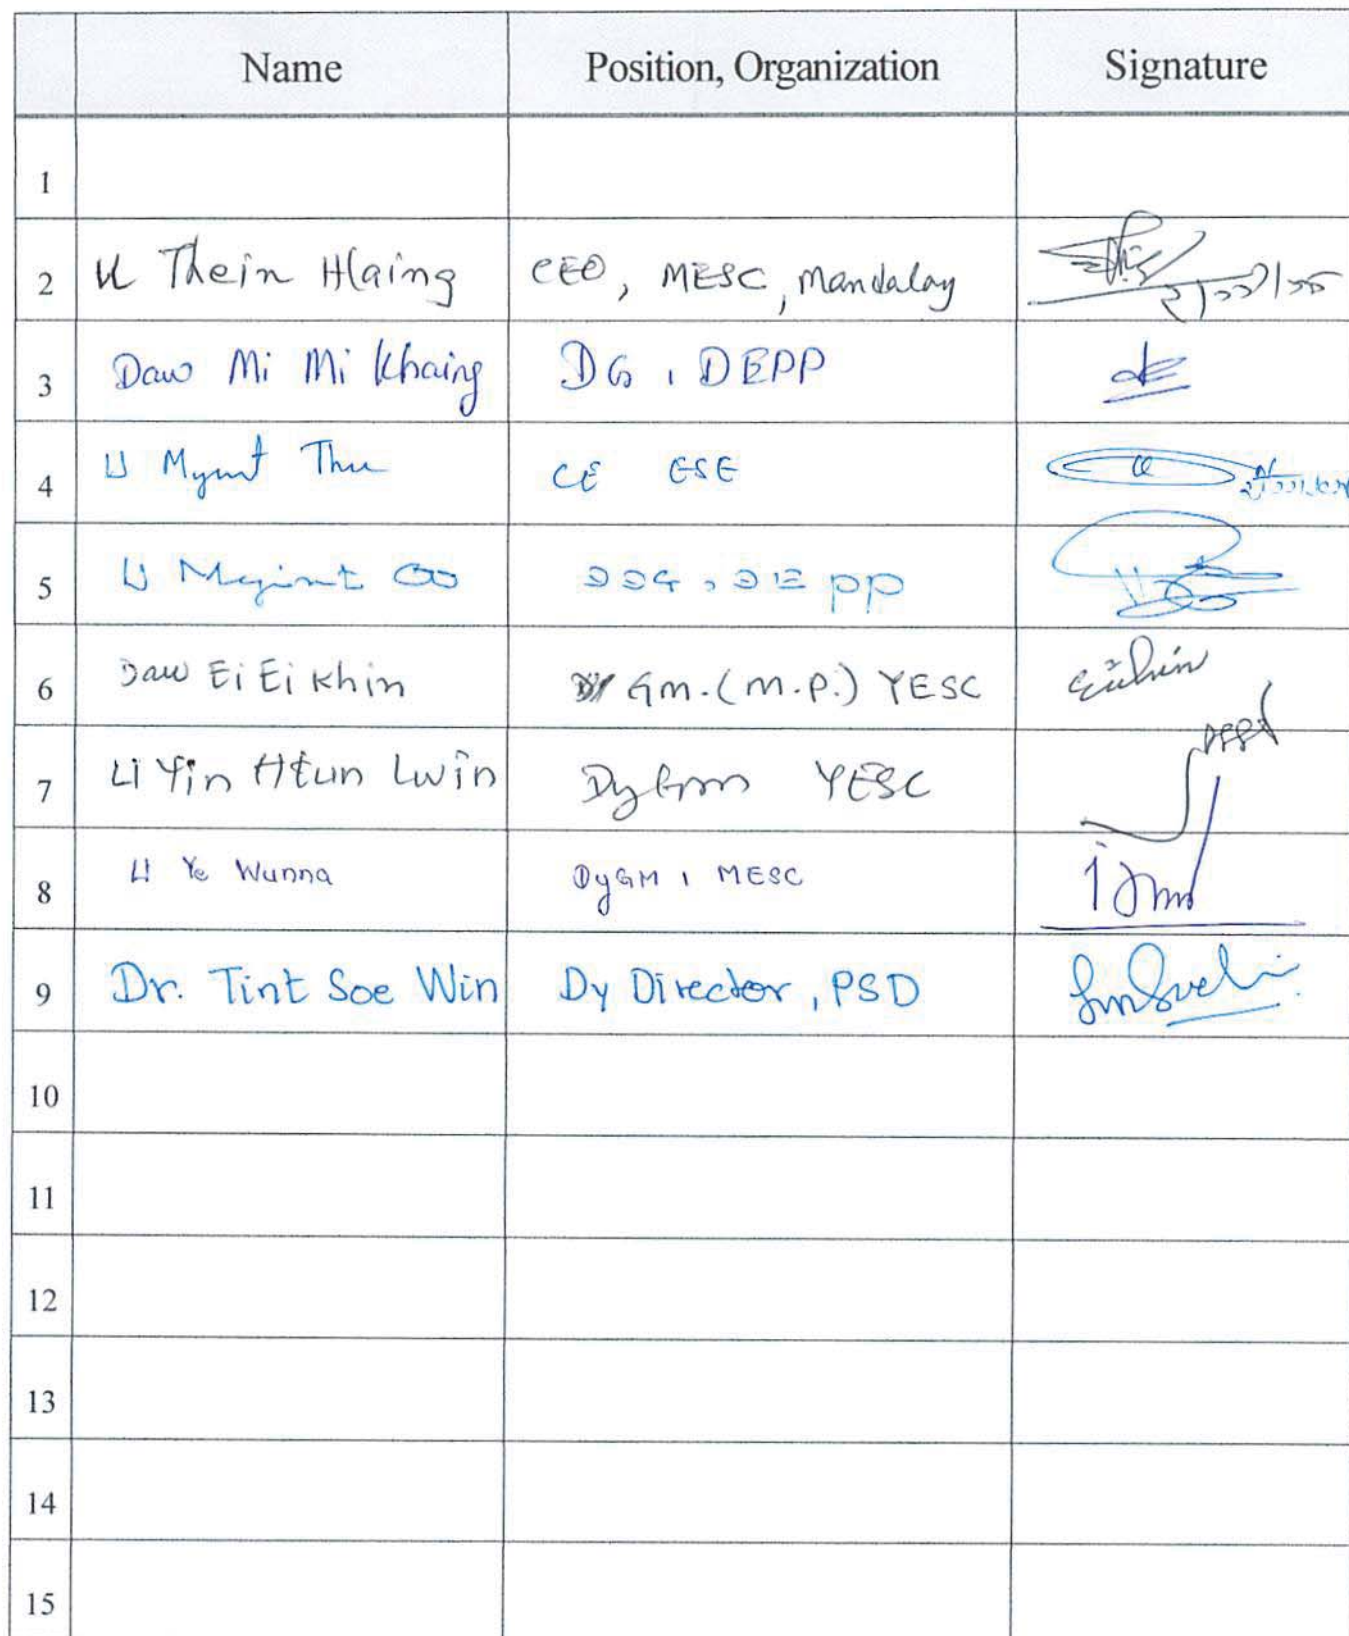 Name Position, Organization Signature
1
2 U Thein Hlaing CEO, MESC, Mandalay
3 Daw Mi Mi Khaing DG, DEPP
4 U Myint Thu CE ESE
5 U Myint Oo DDG, DEPP
6 Daw Ei Ei Khin Gm.(m.p.) YESC
7 U Yin Htun Lwin DyGm YESC
8 U Ye Wunna DyGM, MESC
9 Dr. Tint Soe Win Dy Director, PSD
10
11
12
13
14
15